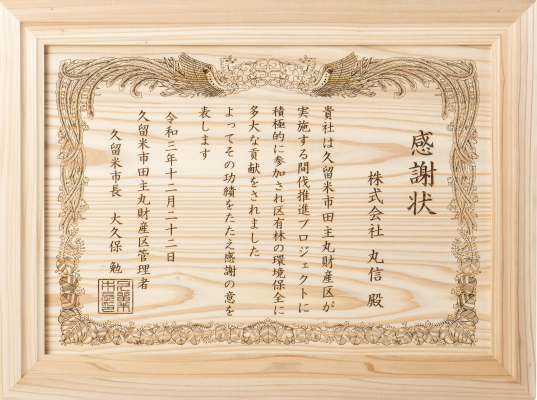 感謝状
株式会社 丸信 殿
貴社は久留米市田主丸財産区が
実施する間伐推進プロジェクトに
積極的に参加され区有林の環境保全に
多大な貢献をされました
よってその功績をたたえ感謝の意を
表します
令和三年十二月二十二日
久留米市田主丸財産区管理者
久留米市長 大久保 勉